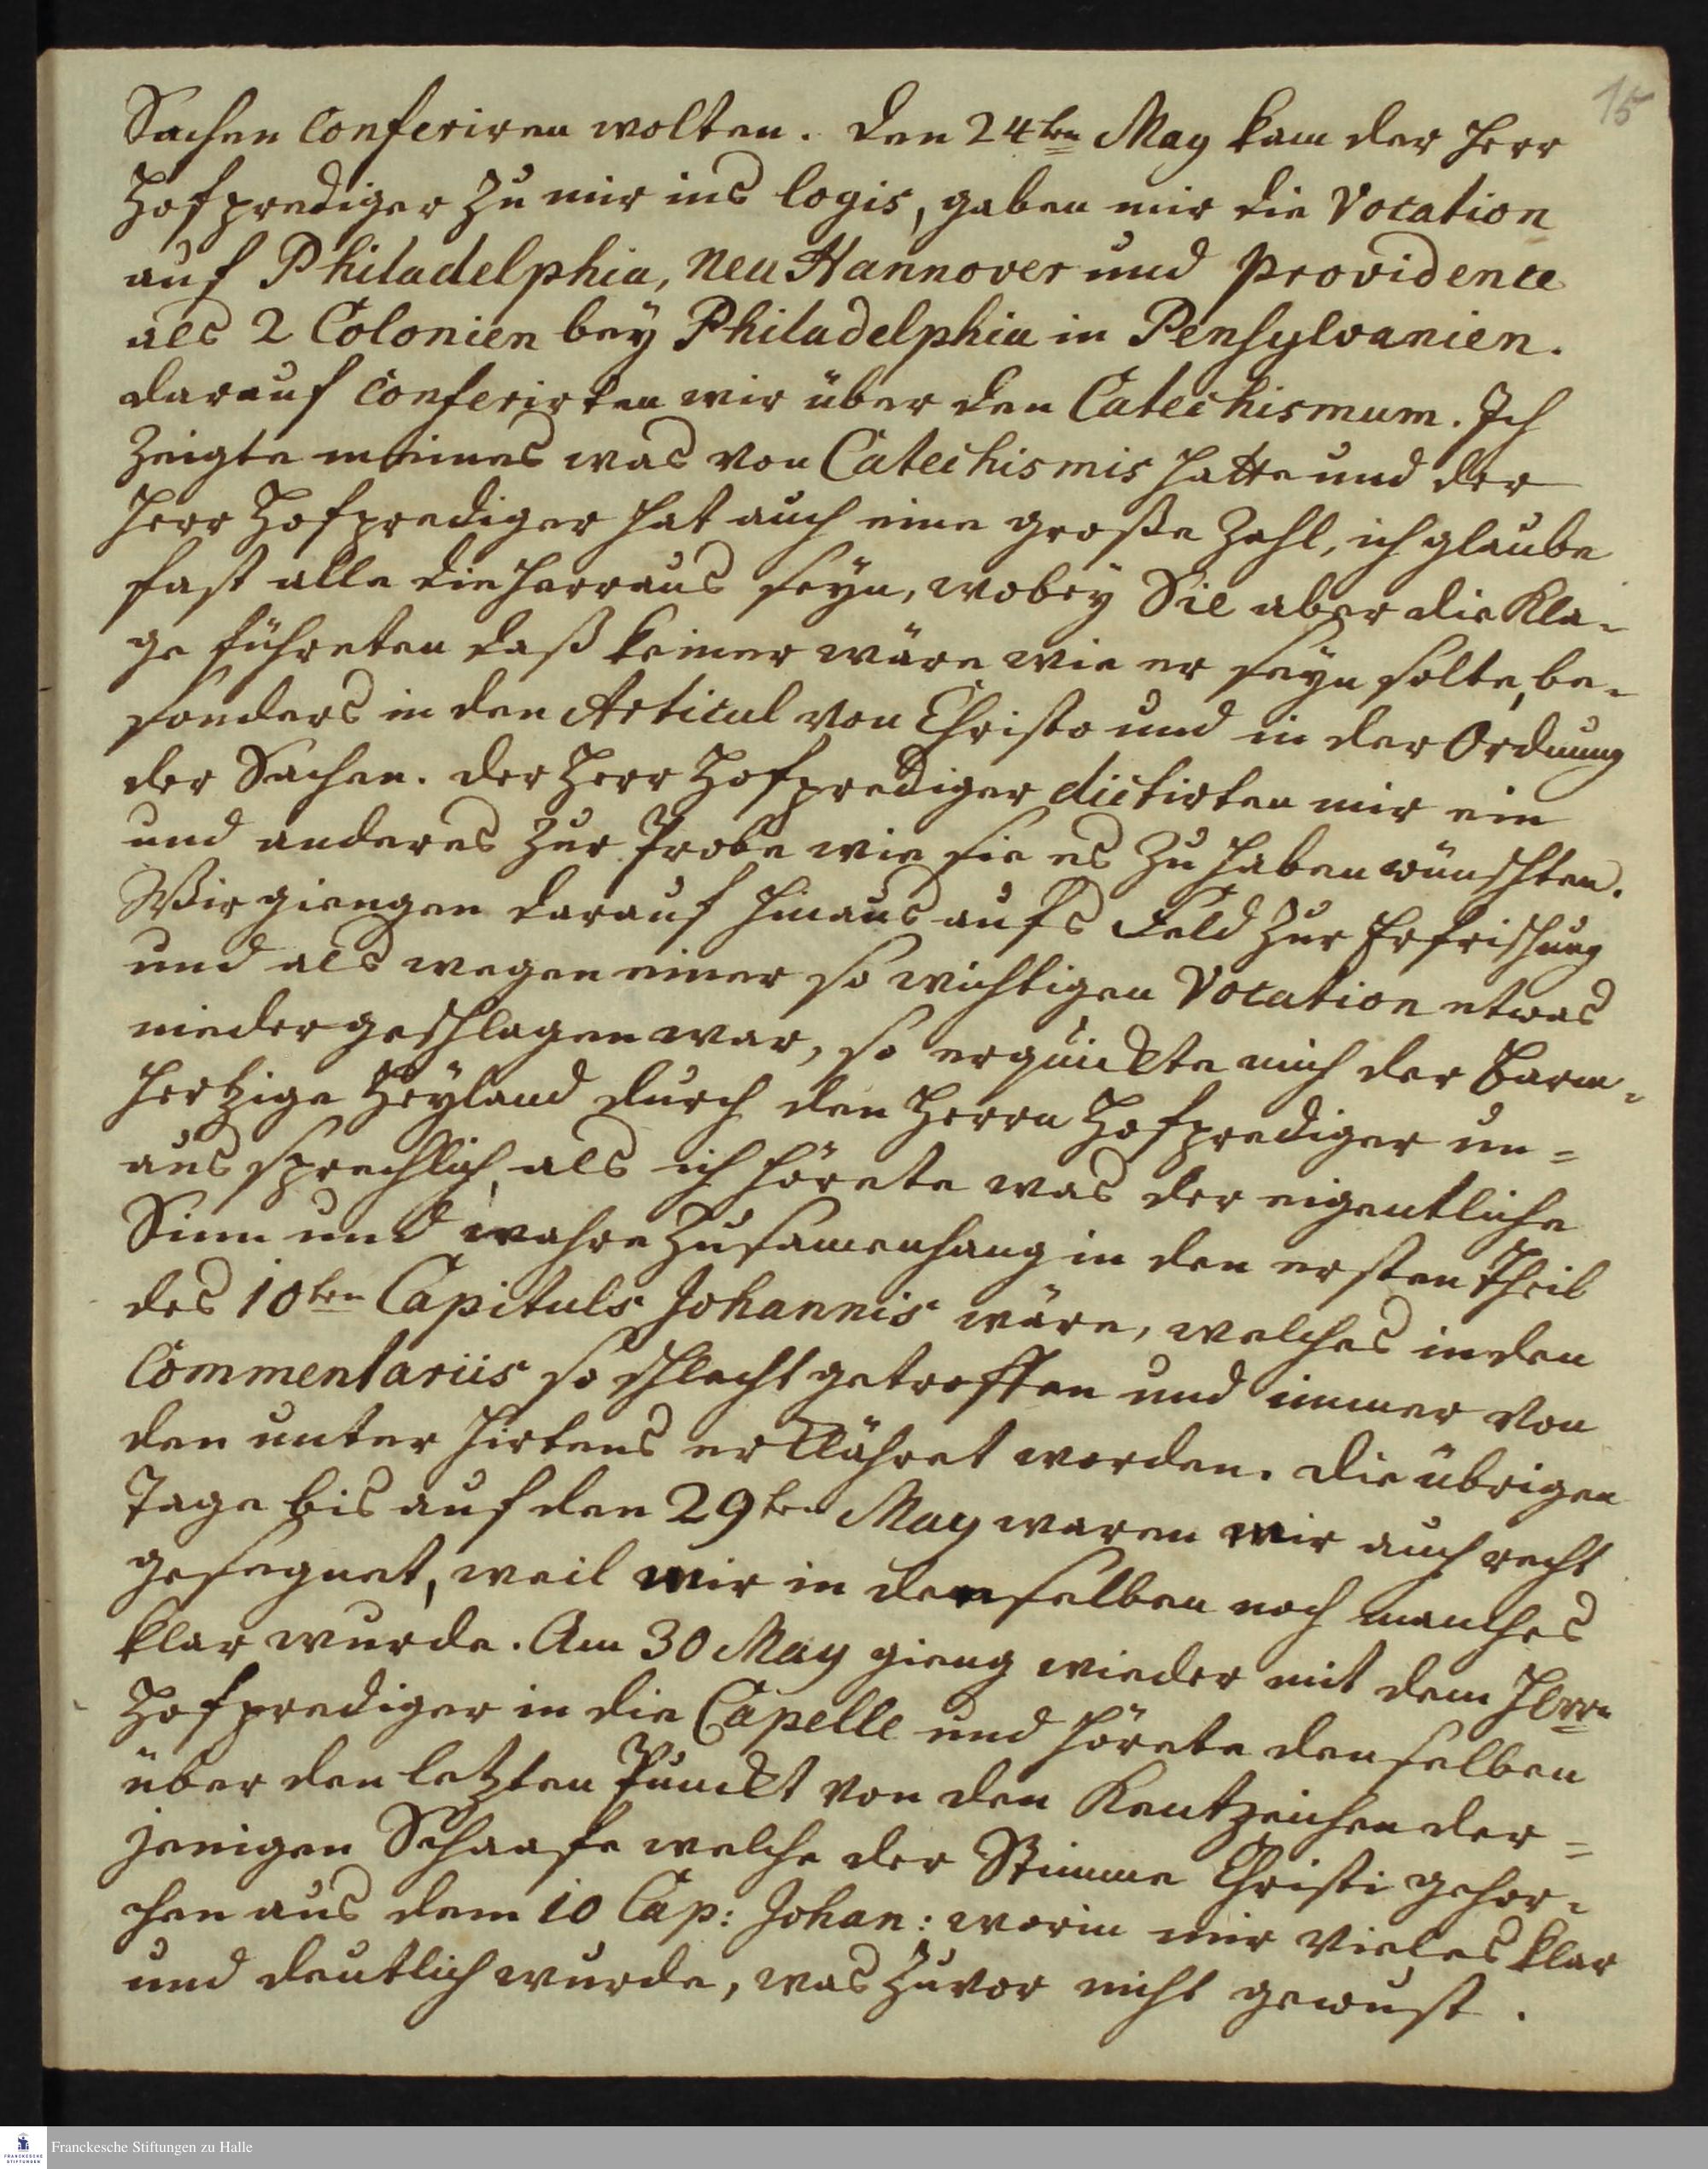 15
Sachen conferiren wolten. Den 24ten May kam der Herr
Hofprediger zu mir ins logis, gaben mir die Vocation
auf Philadelphia, Neu Hannover und Providence
als 2 Colonien bey Philadelphia in Pensylvanien.
darauf conferirten wir über den Catechismum. Ich
zeigte meines was von Catechismis hatte und der
Herr Hofprediger hat auch eine große Zahl, ich glaube
fast alle die herraus seyn, wobey Sie aber die Kla-
ge führeten daß keiner wäre wie er seyn solte, be-
sonders in den Articul von Christo und in der Ordnung
der Sachen. Der Herr Hofprediger dictirten mir ein
und anderes zur Probe wie sie es zu haben wünschten.
Wir giengen darauf hinaus aufs Feld zur Erfrischung
und als wegen einer so wichtigen Vocation etwas
niedergeschlagen war, so erquickte mich der barm-
hertzige Heyland durch den Herrn Hofprediger un=
aussprechlich, als ich hörete was der eigentliche
Sinn und wahre Zusamenhang in den ersten Theil
des 10ten Capituls Johannis wäre, welches in den
Commentariis so schlecht getroffen und immer von
den unter Hirtens erklähret worden. Die übrigen
Tage bis auf den 29ten May waren mir auch recht
gesegnet, weil mir in denselben noch manches
klar wurde. Am 30 May gieng wieder mit dem Herrn
Hofprediger in die Capelle und hörete denselben
über den letzten Punckt von den Kentzeichen der=
jenigen Schaafe welche der Stimme Christi gehor-
chen aus dem 10 Cap: Johan: worin mir vieles klar
und deutlich wurde, was zuvor nicht gewust.
Franckesche Stiftungen zu Halle